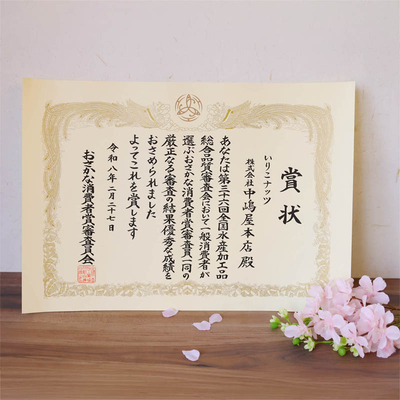 賞状
いりこナッツ
株式会社 中嶋屋本店 殿
あなたは第三十六回全国水産加工品
総合品質審査会において一般消費者が
選ぶおさかな消費者賞審査員一同の
厳正なる審査の結果優秀な成績を
おさめられました
よってこれを賞します
令和八年二月二十七日
おさかな消費者賞審査員会